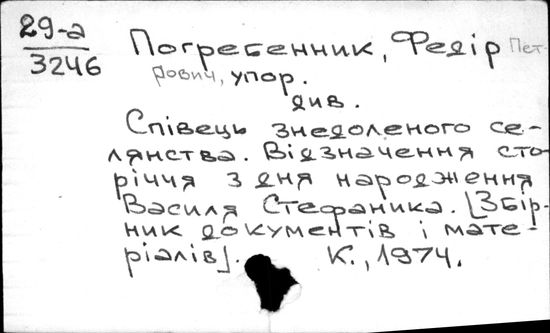 29-а
3246
Погребенник, Федір Пет-
рович, упор.
див.
Співець знедоленого се-
лянства. Відзначення сто-
річчя з дня народження
Василя Стефаника. [Збір-
ник документів і мате-
ріалів].
К., 1974.